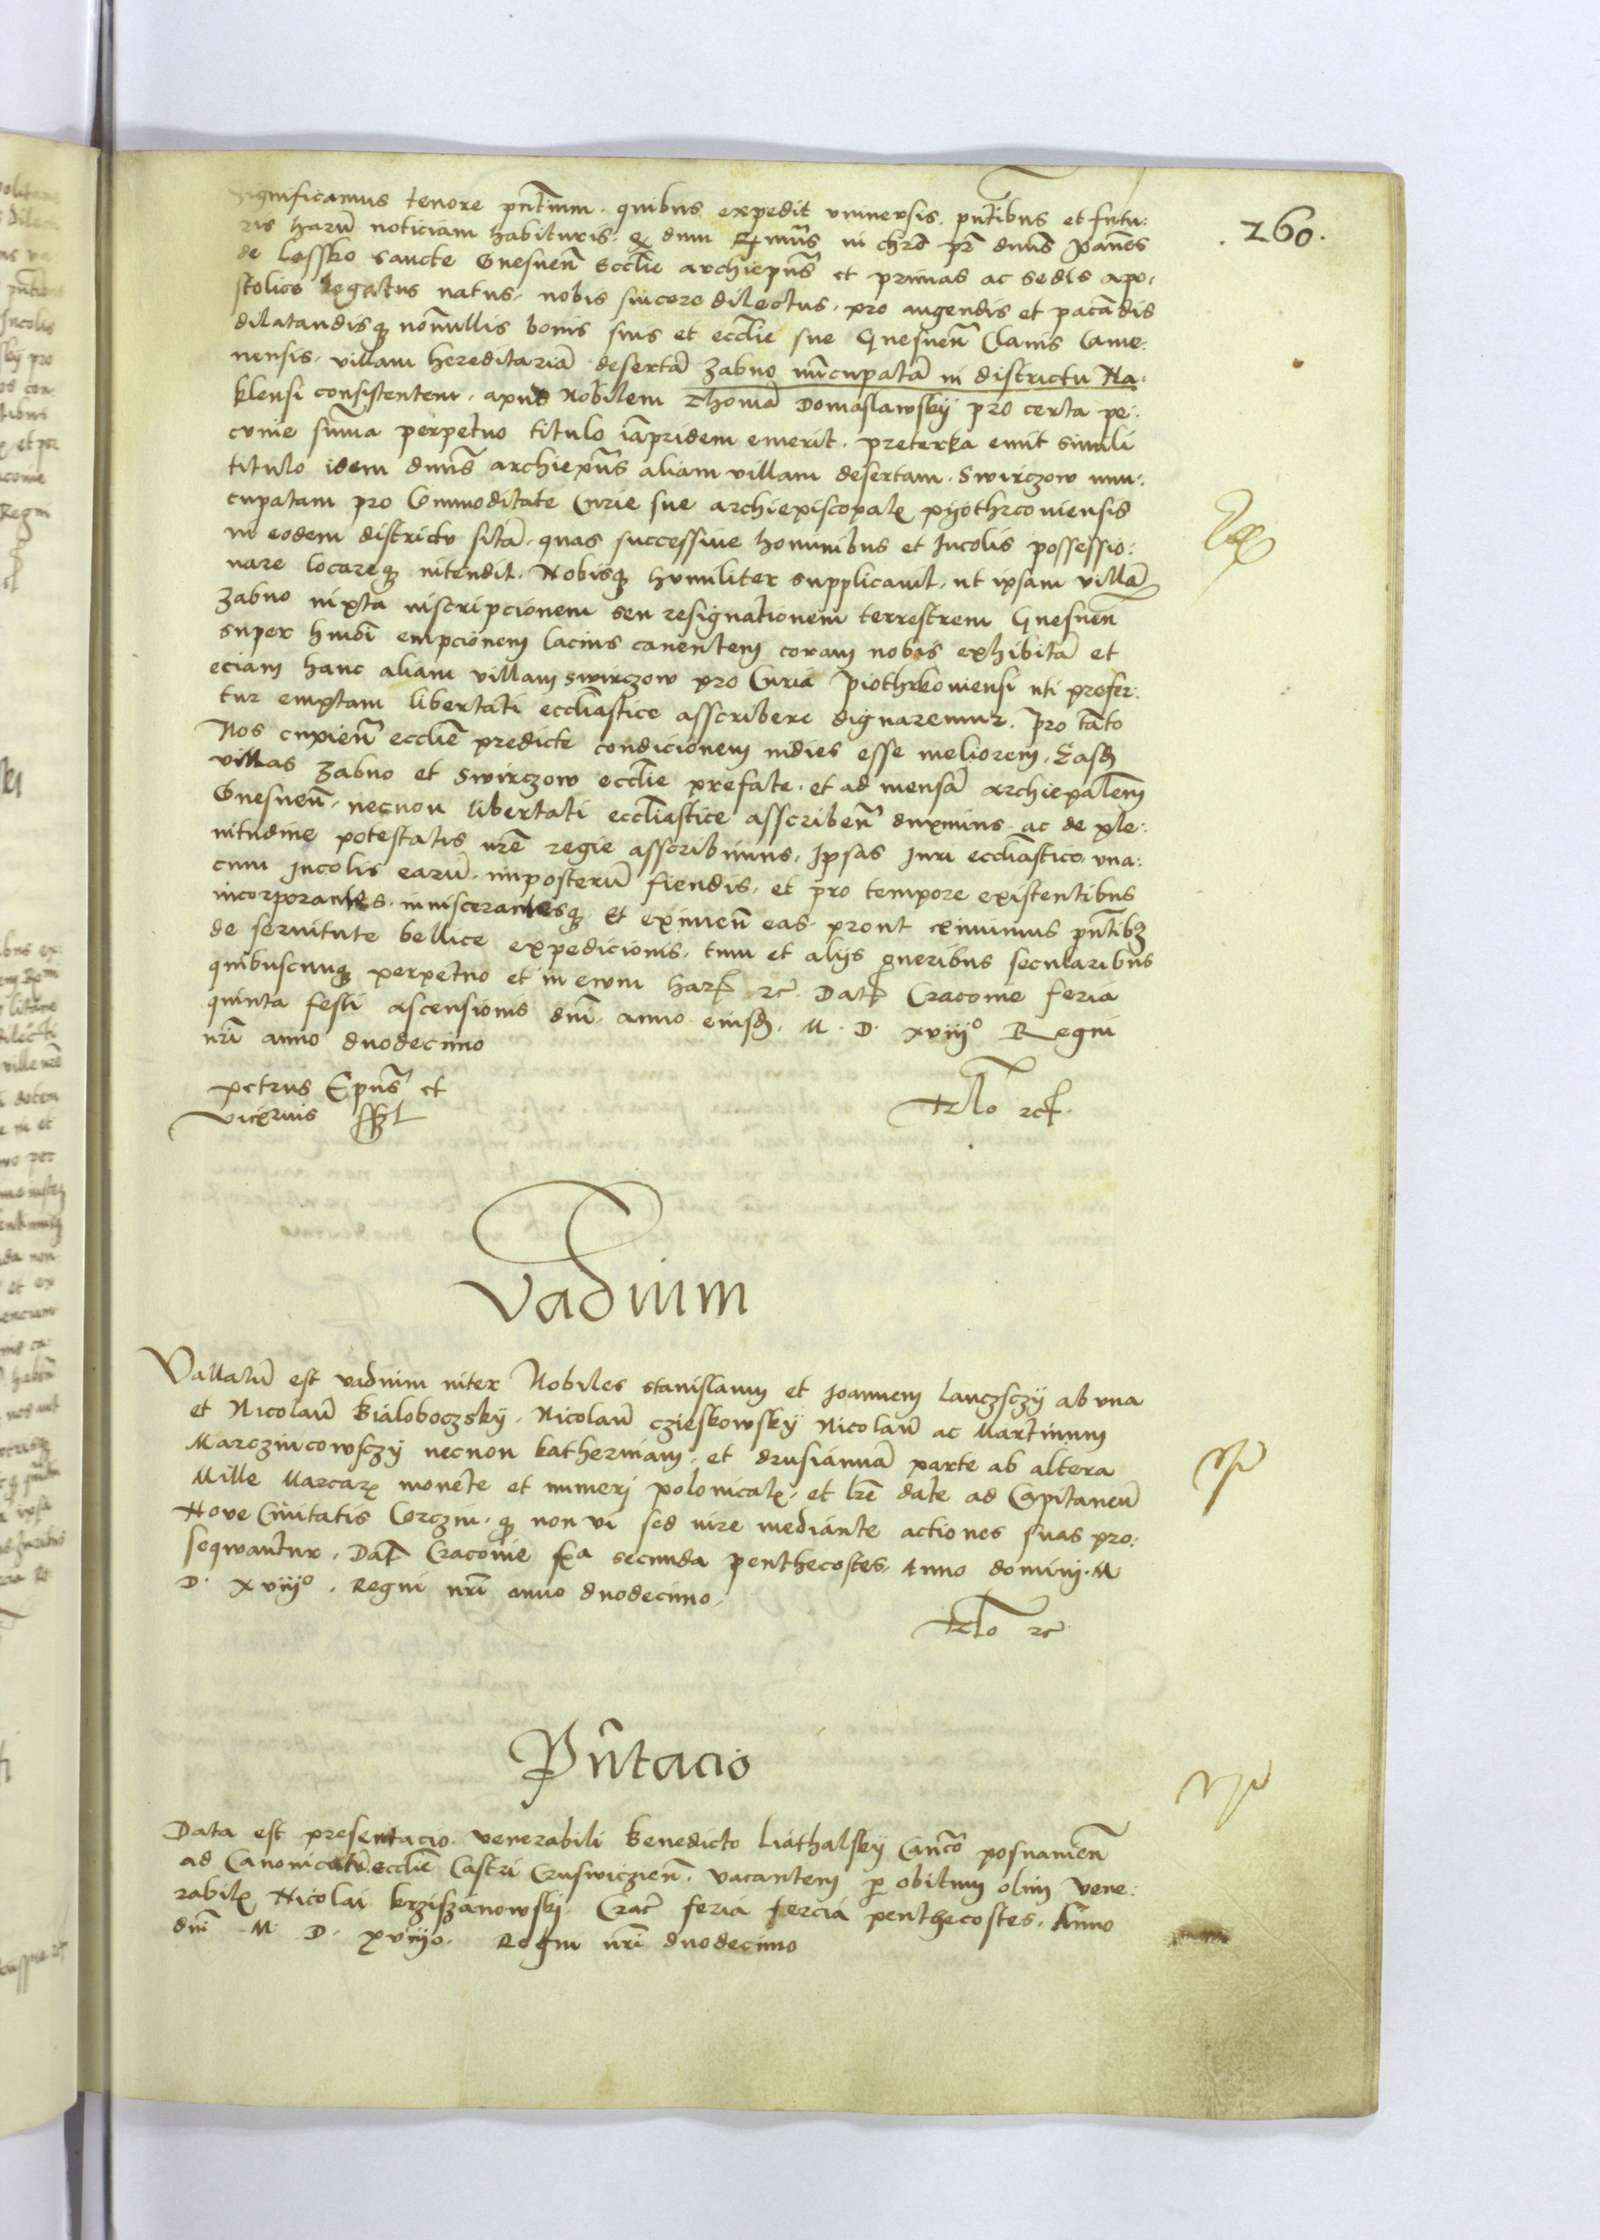 .260.
significamus tenore pn̄tium. quibus expedit vniuersis. pn̄tibus et futu:
ris harū noticiam habituris. dum Rmūs in chrō pr̄ dnūs Joānes
de Lassko sancte Gnesneñ Ecclīe archiepūs et primas ac sedis apo:
stolice legatus natus. nobis sincere dilectus. pro augendis et pacādis
dilatandisq̨ nōnullis bonis suis et ecclīe sue Gnesneñ Clauis Came:
nensis. villam hereditariā desertā Zabno nūcupatā in districtu Na:
klensi consistentem. apud Nobilem Thomā Domaslawsky pro certa pe:
cunie sūma perpetuo titulo iāpridem emerit. preterea emit simili
titulo idem dnūs archiepūs aliam villam desertam. Swirczow nun:
cupatam pro Commoditate Curie sue archiepiscopalis pyothrconiensis
in eodem districtu sitā. quas successiue hominibus et Incolis possessio:
nare locareq̨ intendit. Nobisq̨ humiliter supplicauit. ut ipsam villā
Zabno iuxta inscripcionem seu resignationem terrestrem Gnesneñ
super hmōi empcionem lacius canentem coram nobis exhibitā et
eciam hanc aliam villam swirczow pro Curia Piothrkoniensi uti prefer:
tur emptam libertati eccliastice asscribere dignaremur. Pro tāto
Nos cupieñ ecclīe predicte condicionem indies esse meliorem. Easd̄
villas Zabno et Swirczow ecclīe prefate. et ad mensā archiepalem
Gnesneñ. necnon libertati eccliastice asscribeñ duximus. ac de ple:
nitudine potestatis nrē regie asscribimus. Ipsas Juri eccliastico vna:
cum Incolis earū. imposterū fiendis. et pro tempore existentibus
incorporantes. inuiscerantesq̨. Et eximeñ eas prout eximimus pn̄tibȝ
de seruitute bellice expedicionis. tum et alijs oneribus secularibus
quibuscunq̨ perpetuo et in euum harꝝ rc̄. Datꝭ Cracouie feria
quinta festi ascensionis dnī. anno eiusd̄. M. D. xviijo Regni
nrī anno duodecimo
petrus Epūs et
Vicexrius sst
Rlo rcꝭ.
Vadium
Vallatū est vadium inter Nobiles stanislaum et Joannem Lanczsczy ab vna
et Nicolaū Bialoboczsky. Nicolaū czieskowsky Nicolaū ac Martinum
Marczincowsczy necnon katherinam. et drusiannā parte ab altera
Mille Marcarꝝ monete et numeri polonicalꝭ. et lrē date ad Capitaneū
Noue Ciuitatis Corczin. q̨ non vi sed iure mediante actiones suas pro:
seqwantur. Datꝭ Cracouie fra secunda penthecostes. Anno domini. M
D. xviijo. Regni nrī anno duodecimo.
Rlo rc̄
Pn̄tacio
Data est presentacio. venerabili Benedicto Liathalsky Canco posnanieñ
ad Canonicatū ecclīe Castri Cruswiczieñ. vacantem ꝑ obitum olim Vene:
rabilꝭ Nicolai krziszanowski. Crac̄ feria tercia penthecostes. Anno
dnī M. D. xviijo. Regni nrī duodecimo